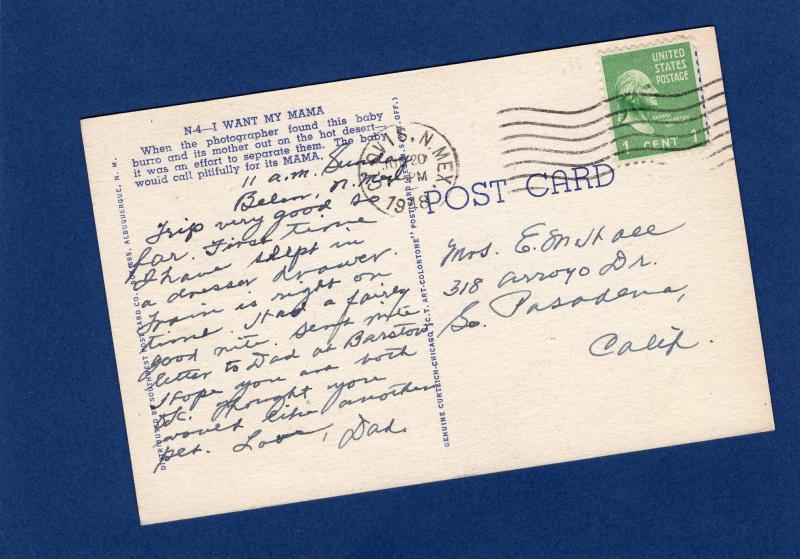 N-4—I WANT MY MAMA
When the photographer found this baby
burro and its mother out on the hot desert—
it was an effort to separate them. The baby
would call pitifully for its MAMA.
11 a.m. Sunday
Belen, N. Mex.
Trip very good so
far. First time
I have slept in
a dresser drawer.
Train is right on
time. Had a fairly
good nite. Send nite
letter to Dad at Barstow
Hope you are both
OK. Thought you
would like another
pet. Love, Dad.
DISTRIBUTED BY SOUTHWEST POST CARD CO., ALBUQUERQUE, N. M.
GENUINE CURTEICH-CHICAGO "C.T. ART-COLORTONE" POSTCARD (REG. U.S. PAT. OFF.)
CLOVIS, N. MEX.
20
PM
1948
UNITED
STATES
POSTAGE
GEORGE
WASHINGTON
1 CENT 1
POST CARD
Mrs. E.
318 Arroyo Dr.
So. Pasadena,
Calif.